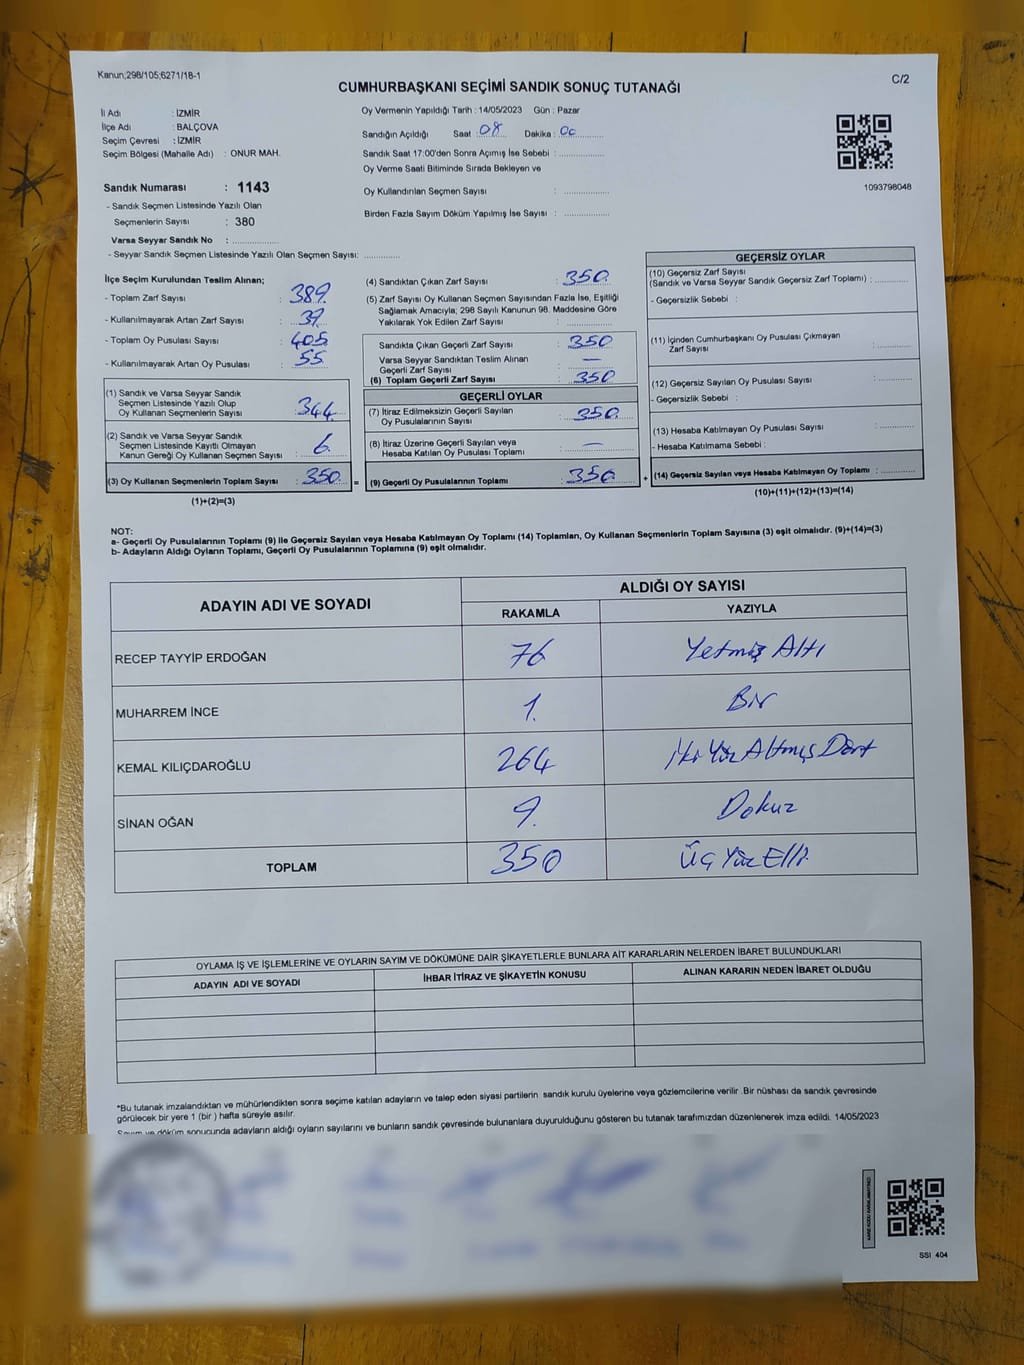 Kanun;298/105;6271/18-1
C/2
CUMHURBAŞKANI SEÇİMİ SANDIK SONUÇ TUTANAĞI
İl Adı : İZMİR
İlçe Adı : BALÇOVA
Seçim Çevresi : İZMİR
Seçim Bölgesi (Mahalle Adı) : ONUR MAH.
Sandık Numarası : 1143
- Sandık Seçmen Listesinde Yazılı Olan
Seçmenlerin Sayısı : 380
Varsa Seyyar Sandık No : ................
- Seyyar Sandık Seçmen Listesinde Yazılı Olan Seçmen Sayısı: ................
Oy Vermenin Yapıldığı Tarih : 14/05/2023 Gün : Pazar
Sandığın Açıldığı Saat : 08 Dakika : 00
Sandık Saat 17:00'den Sonra Açımış İse Sebebi : ................
Oy Verme Saati Bitiminde Sırada Bekleyen ve
Oy Kullandırılan Seçmen Sayısı : ................
Birden Fazla Sayım Döküm Yapılmış İse Sayısı : ................
1093798048
İlçe Seçim Kurulundan Teslim Alınan;
- Toplam Zarf Sayısı : 389
- Kullanılmayarak Artan Zarf Sayısı : 39
- Toplam Oy Pusulası Sayısı : 405
- Kullanılmayarak Artan Oy Pusulası : 55
(1) Sandık ve Varsa Seyyar Sandık
Seçmen Listesinde Yazılı Olup
Oy Kullanan Seçmenlerin Sayısı : 344
(2) Sandık ve Varsa Seyyar Sandık
Seçmen Listesinde Kayıtlı Olmayan
Kanun Gereği Oy Kullanan Seçmen Sayısı : 6
(3) Oy Kullanan Seçmenlerin Toplam Sayısı : 350 =
(1)+(2)=(3)
(4) Sandıktan Çıkan Zarf Sayısı : 350
(5) Zarf Sayısı Oy Kullanan Seçmen Sayısından Fazla İse, Eşitliği
Sağlamak Amacıyla; 298 Sayılı Kanunun 98. Maddesine Göre
Yakılarak Yok Edilen Zarf Sayısı : ................
Sandıkta Çıkan Geçerli Zarf Sayısı : 350
Varsa Seyyar Sandıktan Teslim Alınan
Geçerli Zarf Sayısı : —
(6) Toplam Geçerli Zarf Sayısı : 350
GEÇERLİ OYLAR
(7) İtiraz Edilmeksizin Geçerli Sayılan
Oy Pusulalarının Sayısı : 350
(8) İtiraz Üzerine Geçerli Sayılan veya
Hesaba Katılan Oy Pusulası Toplamı : —
(9) Geçerli Oy Pusulalarının Toplamı : 350 +
GEÇERSİZ OYLAR
(10) Geçersiz Zarf Sayısı
(Sandık ve Varsa Seyyar Sandık Geçersiz Zarf Toplamı) : ..........
- Geçersizlik Sebebi :
(11) İçinden Cumhurbaşkanı Oy Pusulası Çıkmayan
Zarf Sayısı : ..........
(12) Geçersiz Sayılan Oy Pusulası Sayısı : ..........
- Geçersizlik Sebebi :
(13) Hesaba Katılmayan Oy Pusulası Sayısı : ..........
- Hesaba Katılmama Sebebi :
(14) Geçersiz Sayılan veya Hesaba Katılmayan Oy Toplamı : ..........
(10)+(11)+(12)+(13)=(14)
NOT:
a- Geçerli Oy Pusulalarının Toplamı (9) ile Geçersiz Sayılan veya Hesaba Katılmayan Oy Toplamı (14) Toplamları, Oy Kullanan Seçmenlerin Toplam Sayısına (3) eşit olmalıdır. (9)+(14)=(3)
b- Adayların Aldığı Oyların Toplamı, Geçerli Oy Pusulalarının Toplamına (9) eşit olmalıdır.
ADAYIN ADI VE SOYADI
ALDIĞI OY SAYISI
RAKAMLA YAZIYLA
RECEP TAYYİP ERDOĞAN 76 Yetmiş Altı
MUHARREM İNCE 1. Bir
KEMAL KILIÇDAROĞLU 264 İki Yüz Altmış Dört
SİNAN OĞAN 9. Dokuz
TOPLAM 350 Üç Yüz Elli
OYLAMA İŞ VE İŞLEMLERİNE VE OYLARIN SAYIM VE DÖKÜMÜNE DAİR ŞİKAYETLERLE BUNLARA AİT KARARLARIN NELERDEN İBARET BULUNDUKLARI
ADAYIN ADI VE SOYADI İHBAR İTİRAZ VE ŞİKAYETİN KONUSU ALINAN KARARIN NEDEN İBARET OLDUĞU
*Bu tutanak imzalandıktan ve mühürlendikten sonra seçime katılan adayların ve talep eden siyasi partilerin sandık kurulu üyelerine veya gözlemcilerine verilir. Bir nüshası da sandık çevresinde
görülecek bir yere 1 (bir ) hafta süreyle asılır.
Sayım ve döküm sonucunda adayların aldığı oyların sayılarını ve bunların sandık çevresinde bulunanlara duyurulduğunu gösteren bu tutanak tarafımızdan düzenlenerek imza edildi. 14/05/2023
SSI 404